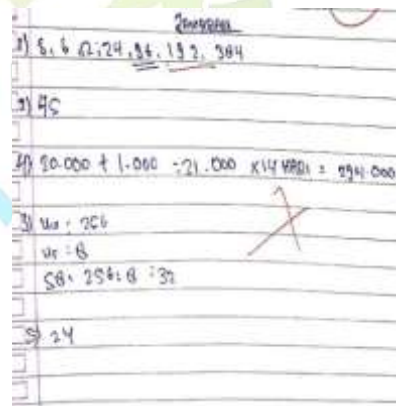 Jawaban
1) 6, 6 12, 24, 96, 192, 384
2) 45
4) 20.000 + 1.000 = 21.000 x 14 HARI = 294.000
3) U10 = 256
U5 = 8
S8 = 256 : 8 = 32
5) 24